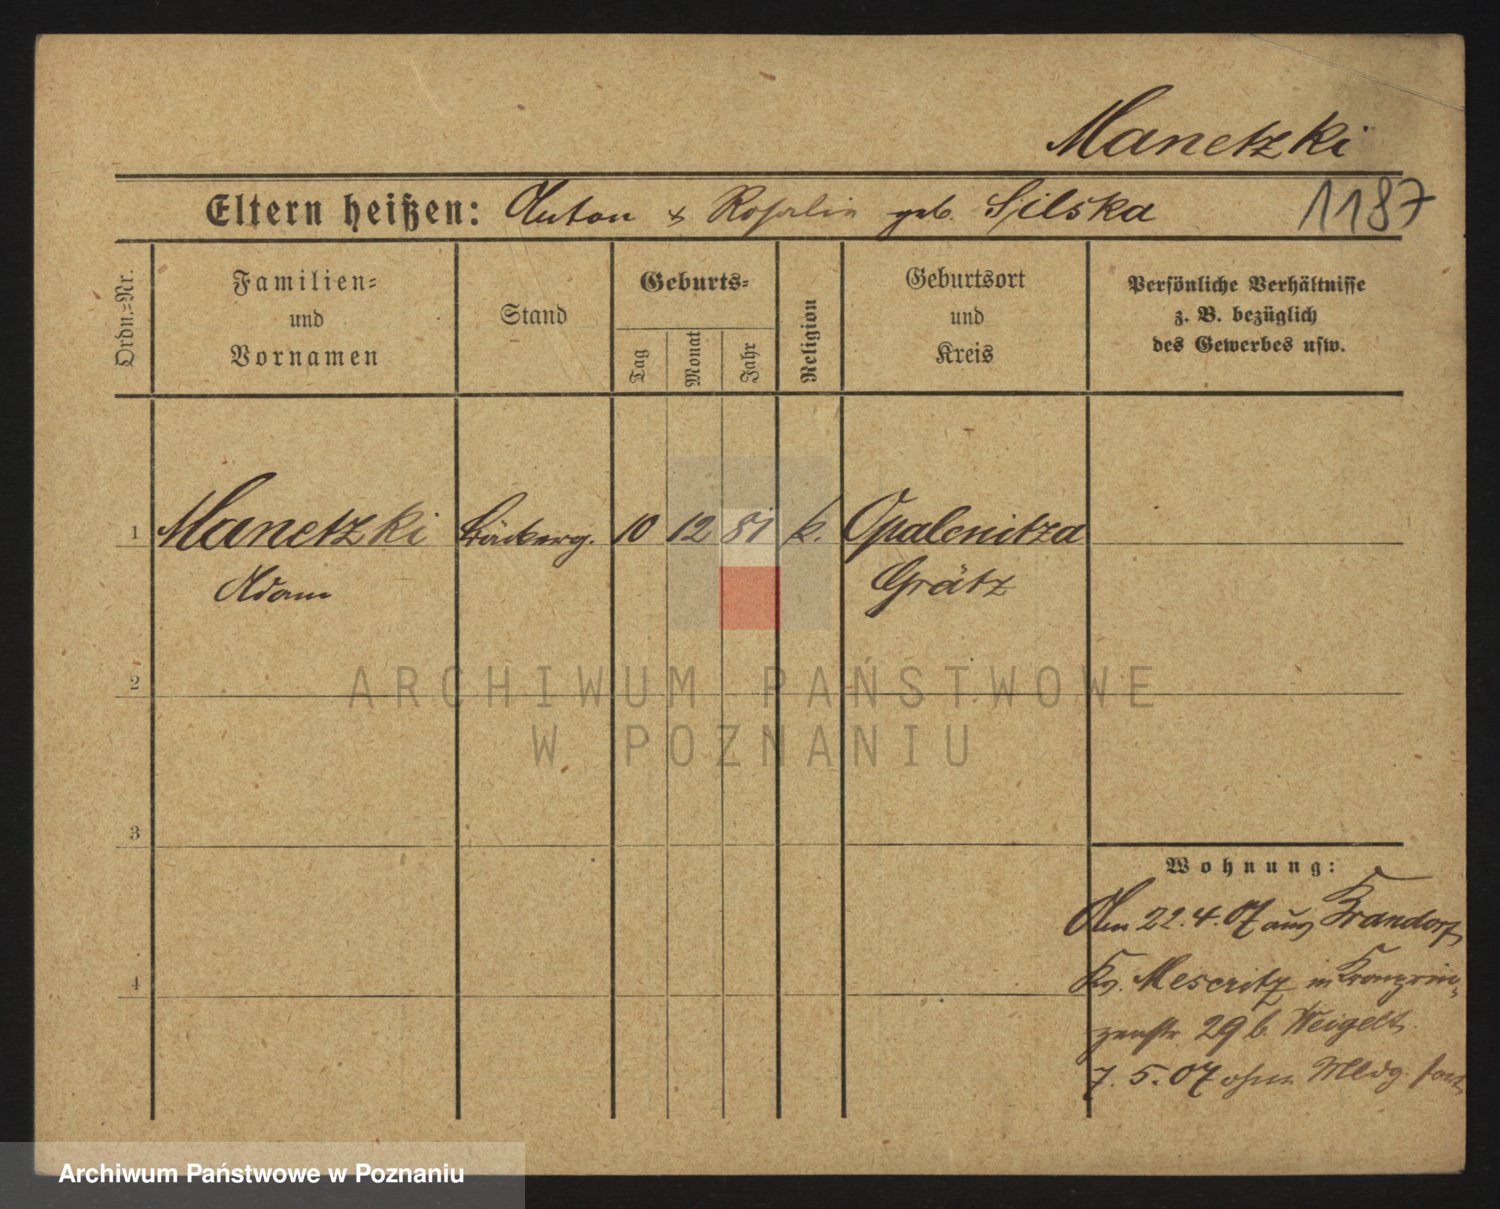 Manetzki
Eltern heißen: Anton & Rosalie geb. Silska
1187
Ordn.=Nr.
Familien=
und
Vornamen
Stand
Geburts=
Tag
Monat
Jahr
Religion
Geburtsort
und
Kreis
Persönliche Verhältnisse
z. B. bezüglich
des Gewerbes usw.
1 Manetzki Bäckerg. 10 12 81 k. Opalenitza
Adam Grätz
2
ARCHIWUM PAŃSTWOWE
W POZNANIU
3
Wohnung:
Am 22.4.07 aus Krandorf
4
Kr. Meseritz in Kronprin-
zenstr. 29 b. Weigelt.
7.5.07 ohne Mldg. fort
Archiwum Państwowe w Poznaniu